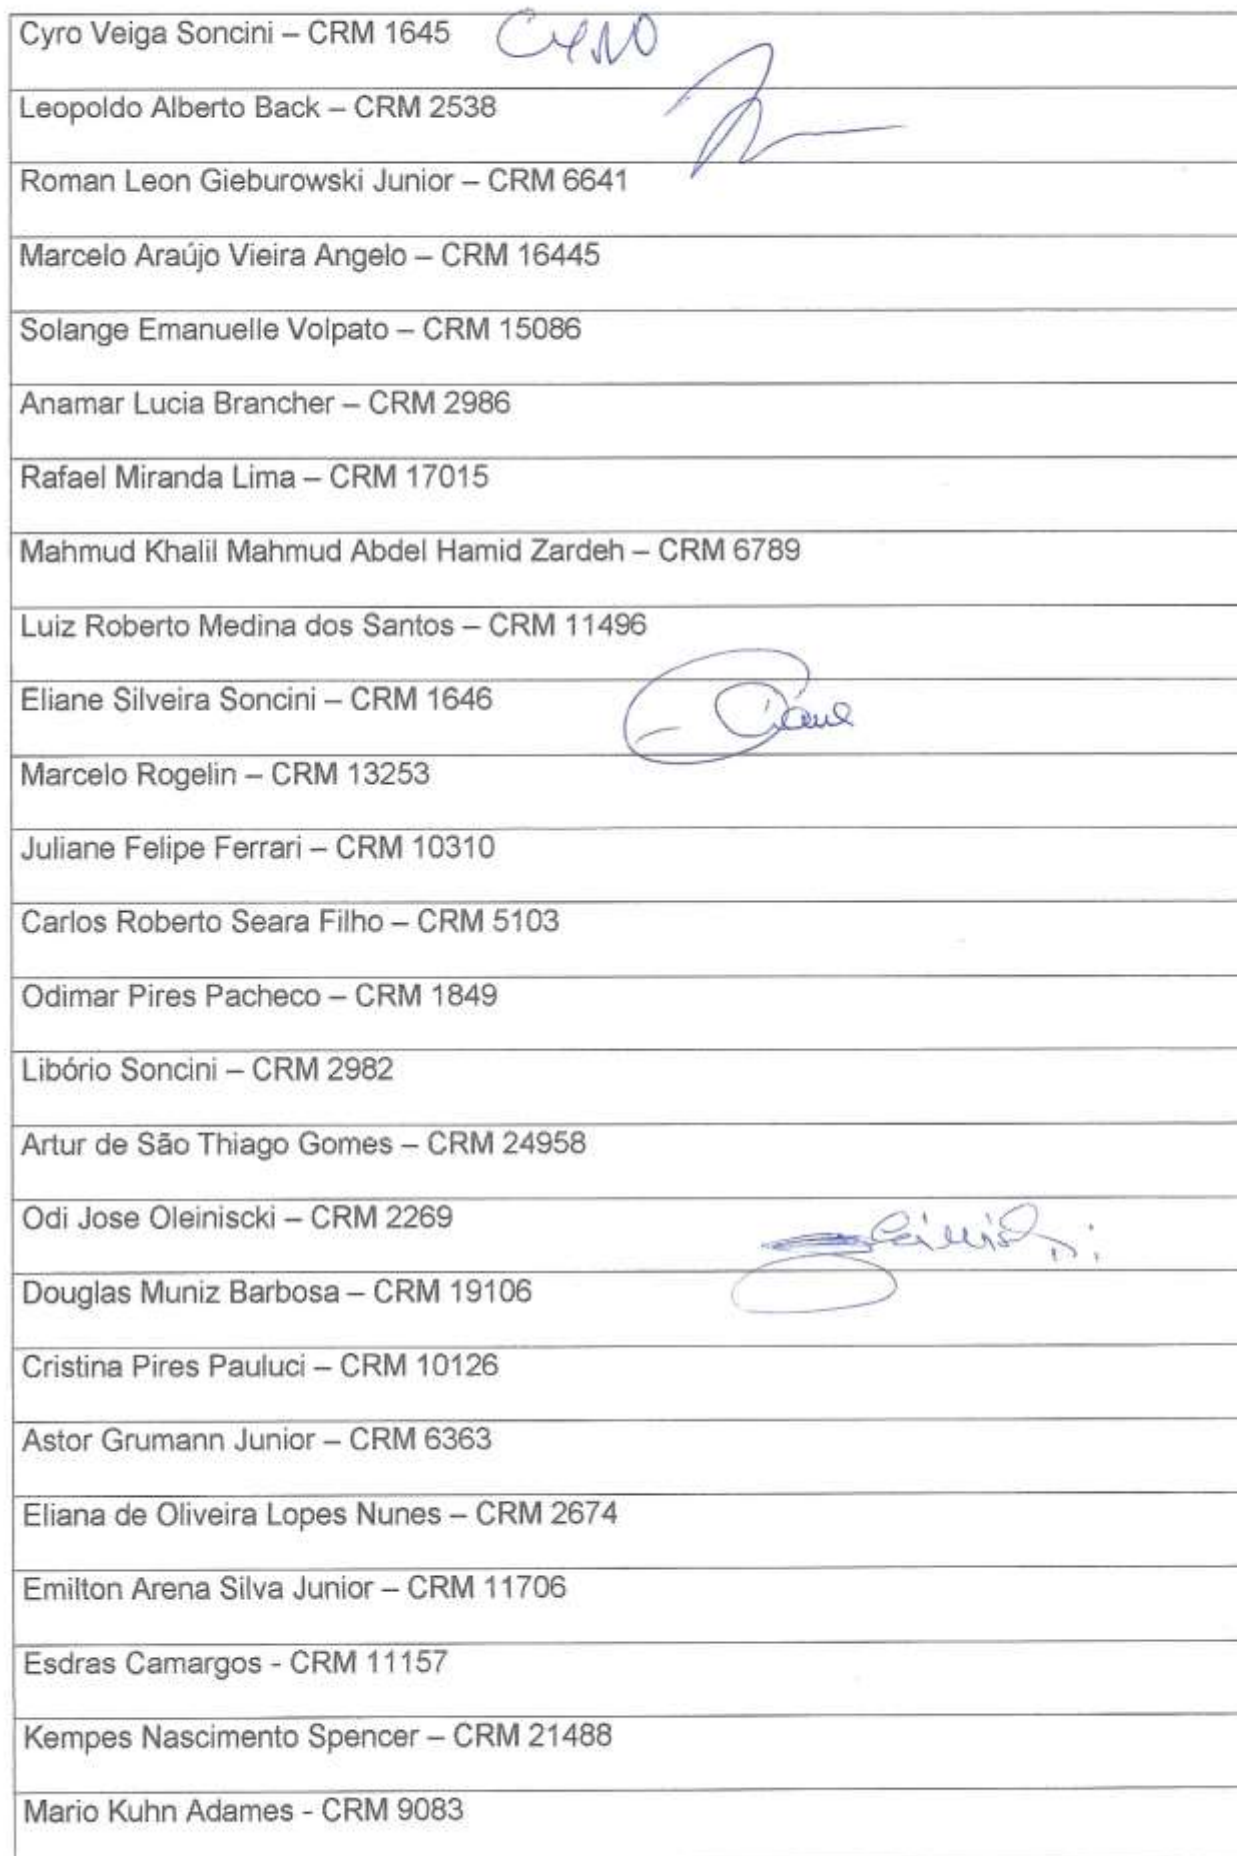 Cyro Veiga Soncini – CRM 1645 Cyro
Leopoldo Alberto Back – CRM 2538
Roman Leon Gieburowski Junior – CRM 6641
Marcelo Araújo Vieira Angelo – CRM 16445
Solange Emanuelle Volpato – CRM 15086
Anamar Lucia Brancher – CRM 2986
Rafael Miranda Lima – CRM 17015
Mahmud Khalil Mahmud Abdel Hamid Zardeh – CRM 6789
Luiz Roberto Medina dos Santos – CRM 11496
Eliane Silveira Soncini – CRM 1646
Marcelo Rogelin – CRM 13253
Juliane Felipe Ferrari – CRM 10310
Carlos Roberto Seara Filho – CRM 5103
Odimar Pires Pacheco – CRM 1849
Libório Soncini – CRM 2982
Artur de São Thiago Gomes – CRM 24958
Odi Jose Oleiniscki – CRM 2269
Douglas Muniz Barbosa – CRM 19106
Cristina Pires Pauluci – CRM 10126
Astor Grumann Junior – CRM 6363
Eliana de Oliveira Lopes Nunes – CRM 2674
Emilton Arena Silva Junior – CRM 11706
Esdras Camargos - CRM 11157
Kempes Nascimento Spencer – CRM 21488
Mario Kuhn Adames - CRM 9083